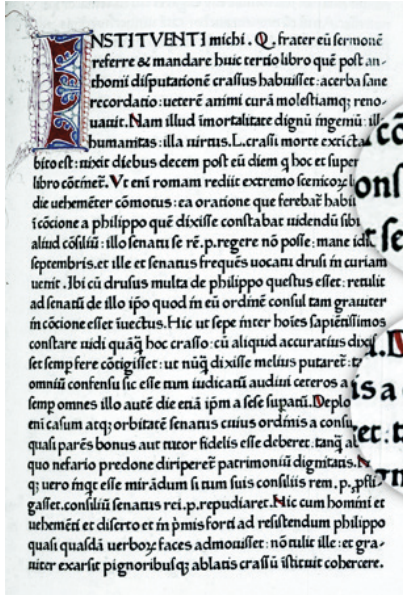 INSTITVENTI michi . Q. frater eū sermonē
referre & mandare huic tertio libro quē post an-
thonii disputationē crassus habuisset: acerba sane
recordatio: ueterē animi curā molestiamq; reno-
uauit. Nam illud īmortalitate dignū ingeniū: illa
humanitas: illa uirtus. L. crassi morte extīcta
bito est: uixit diebus decem post eū diem q hoc et super
libro cōtinet̄. Vt enī romam rediit extremo scenicoꝝ
die uehemēter cōmotus: ea oratione que ferebat̄ habit
ī cōcione a philippo quē dixisse constabat uidendū sibi
aliud cōsiliū: illo senatu se rē.p.regere nō posse: mane idib
septembris.et ille et senatus frequēs uocatu drusi in curiam
uenit . Ibi cū drusus multa de philippo questus esset: retulit
ad senatū de illo ip̄o quod in eū ordinē consul tam grauiter
in cōcione esset īuectus. Hic ut sepe inter hoīes sapiētissimos
constare uidi quāq̄ hoc crasso: cū aliquid accuratius dixis
set semp fere cōtigisset: ut nūq̄ dixisse melius putaret̄:
omniū consensu sic esse tum iudicatū audiui ceteros a
semp omnes illo autē die etiā ip̄m a sese supatū. Deplo
enī casum atq; orbitatē senatus cuius ordinis a consu
quasi parēs bonus aut tutor fidelis esse deberet: tanq̄ ab
quo nefario predone diriperet̄ patrimoniū dignitatis.
q; uero inq̄t esse mirādum si tum suis consiliis rem. p. pfli
gasset.consiliū senatus rei.p.repudiaret. Hic cum homini et
uehemēti et diserto et in p̄mis forti ad resistendum philippo
quasi quasdā uerboꝝ faces admouisset: nō tulit ille: et gra-
uiter exarsit pignoribusq; ablatis crassū īstituit cohercere.